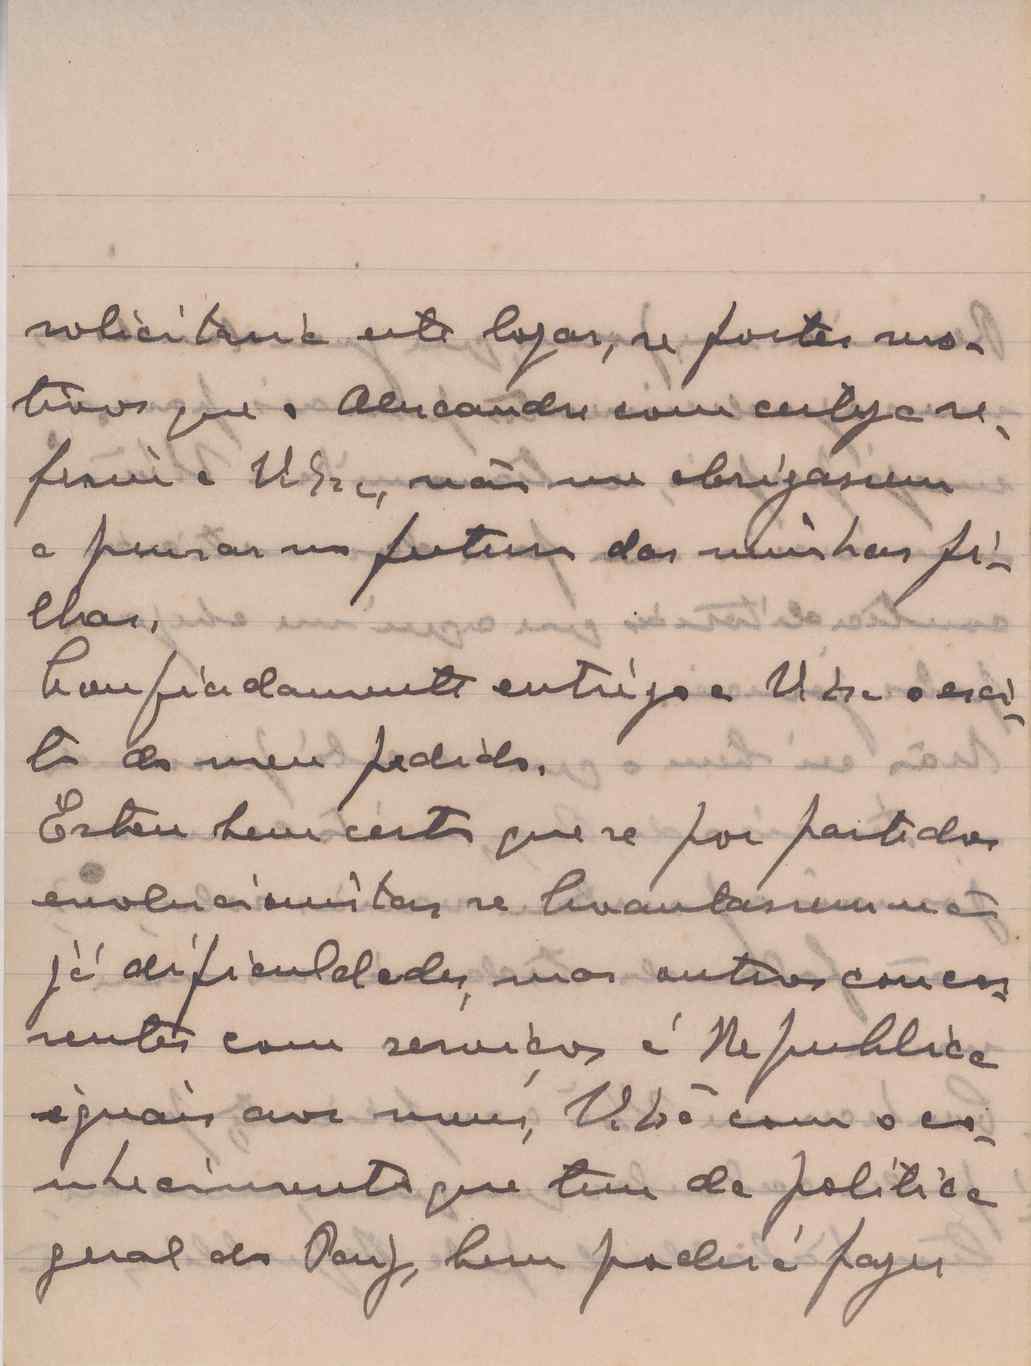 solicitaria este logar, se fortes mo-
tivos que o Alexandre com certeza re-
feriu a V. Exa, não me obrigassem
a pensar no futuro das minhas fi-
lhas.
Confiadamente entrego a V. Exa o exi-
to do meu pedido.
Estou bem certo que se por partidos
evolucionistas se levantassem
já dificuldades, mas outros concor-
rentes com serviços á Republica
iguais aos meus, V. Exa com o co-
nhecimento que tem da politica
geral do Paiz, bem poderá fazer